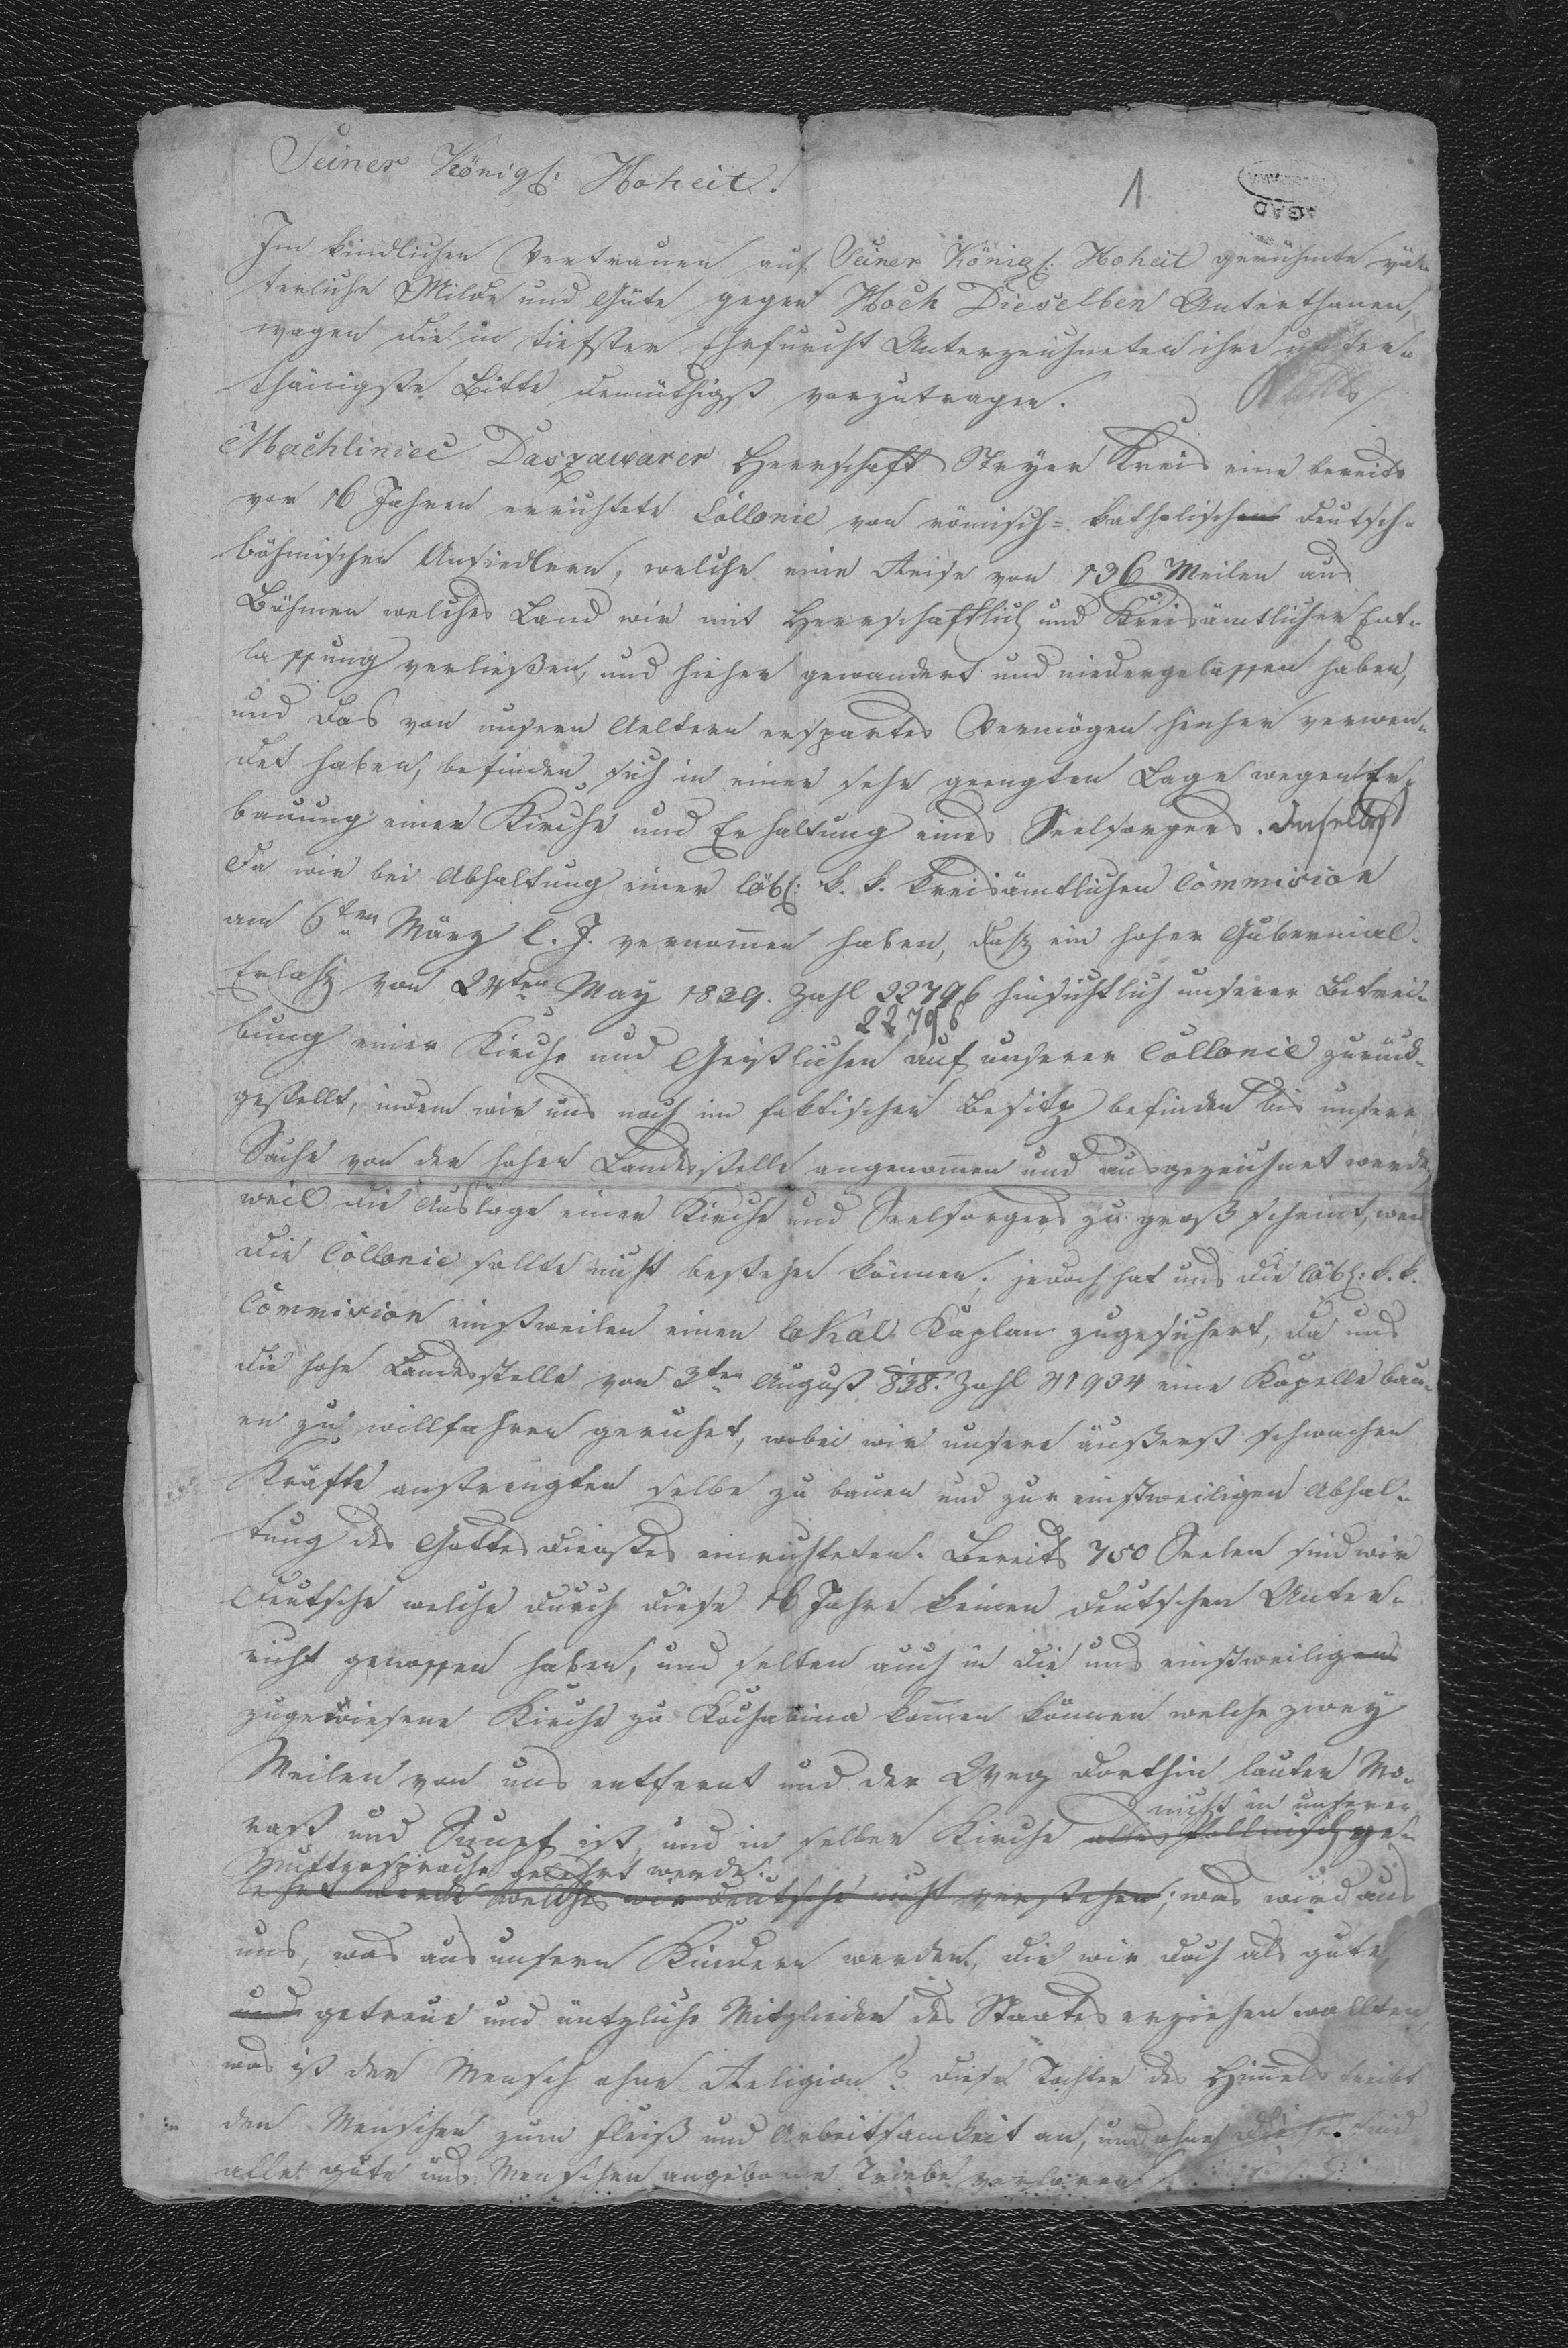 Seiner Königl: Hoheit!
1
AGAD
Im kindlichen Vertrauen auf Seiner Königl: Hoheit gerühmte vä-
terliche Milde und Güte gegen Hoch Dieselben Unterthanen,
wagen die in tiefster Ehrfurcht Unterzeichneten ihre unter-
thänigste Bitte demüthigst vorzutragen.
Machliniec Daszawarer Herrschaft Stryer Kreis eine bereits
vor 16 Jahren errichtete Collonie von römisch-katholischen deutsch-
böhmischen Ansiedlern, welche eine Reise von 136 Meilen aus
Böhmen welches Land wir mit Herrschaftlich und Kreisämtlicher Ent-
lassung verließen, und hieher gewandert und niedergelassen haben,
und das von unsern Aeltern erspartes Vermögen hieher verwen-
det haben, befinden sich in einer sehr geengten Lage wegen Er-
bauung einer Kirche und Erhaltung eines Seelsorgers daselbst
Da wir bei Abhaltung einer löbl: k. k. Kreisämtlichen Commision
am 6ten März l. J. vernommen haben, dasz ein hoher Gubernial-
Erlasz von 24ten May 1839. Zahl 22796 hinsichtlich unserer Betrei-
22796
bung einer Kirche und Geistlichen auf unserer Collonie zurück-
gestellt, indem wir uns noch im faktischen Besitz befinden bis unsere
Sache von der hohen Landesstelle angenommen und ausgezeichnet werde,
weil die Auslage einer Kirche und Seelsorgers zu groß scheint, wen
die Collonie sollte nicht bestehen können; jedoch hat uns die löbl: k. k.
Commision einstweilen einen lokal Kaplan zugesichert, da uns
die hohe Landesstelle von 3ten August 838. Zahl 41934 eine Kapelle bau-
en zu willfahren geruhet, wobei wir unsere äußerst schwachen
Kräfte anstrengten selbe zu bauen und zur einstweiligen Abhal-
tung des Gottesdienstes einrichteten. Bereits 750 Seelen sind wir
Deutsche welche durch diese 16 Jahre keinen deutschen Unter-
richt genossen haben, und selten auch in die uns einstweiligens
zugewiesene Kirche zu Kochawina kommen können welche zwey
Meilen von uns entfernt und der Weg dorthin lauter Mo-
nicht in unserer
rast und Sumpf ist, und in selber Kirche alles Pollnisch ge-
Muttersprache gelehrt werde.
lehrt werde welches wir Deutsche nicht verstehen; was wird aus
uns, was aus unsern Kindern werden, die wir doch als gute,
und getreue und nützliche Mitglieder des Staates erziehen wollten,
was ist der Mensch ohne Religion? diese Tochter des Himmels treibt
den Menschen zum Fleiß und Arbeitsamkeit an, und ohne diese sind
alle gute uns Menschen angeborne Triebe verloren.